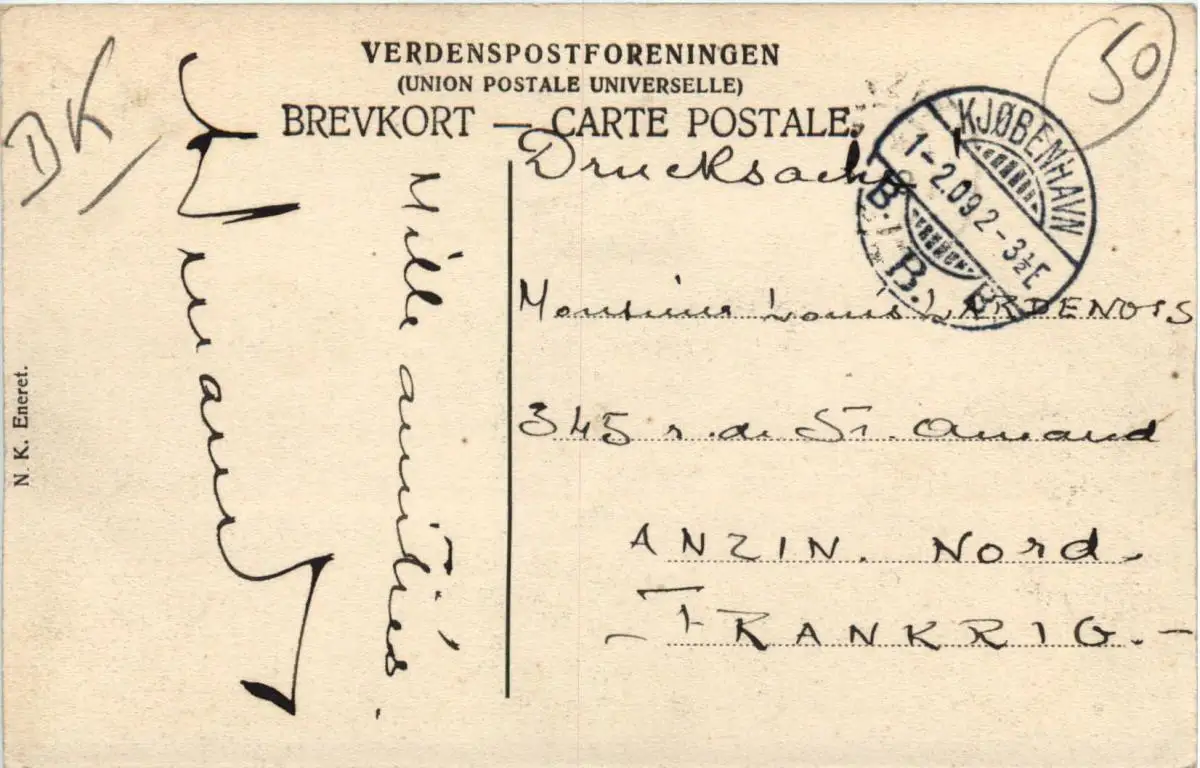 VERDENSPOSTFORENINGEN
(UNION POSTALE UNIVERSELLE)
BREVKORT — CARTE POSTALE.
BK
50
KJØBENHAVN
1-2.09 2-3½E
B. B. B
Drucksache
Mille amitiés.
Monsieur Louis LARDENOIS
345 r. de St. Amand
ANZIN. Nord.
— FRANKRIG. —
N. K. Eneret.